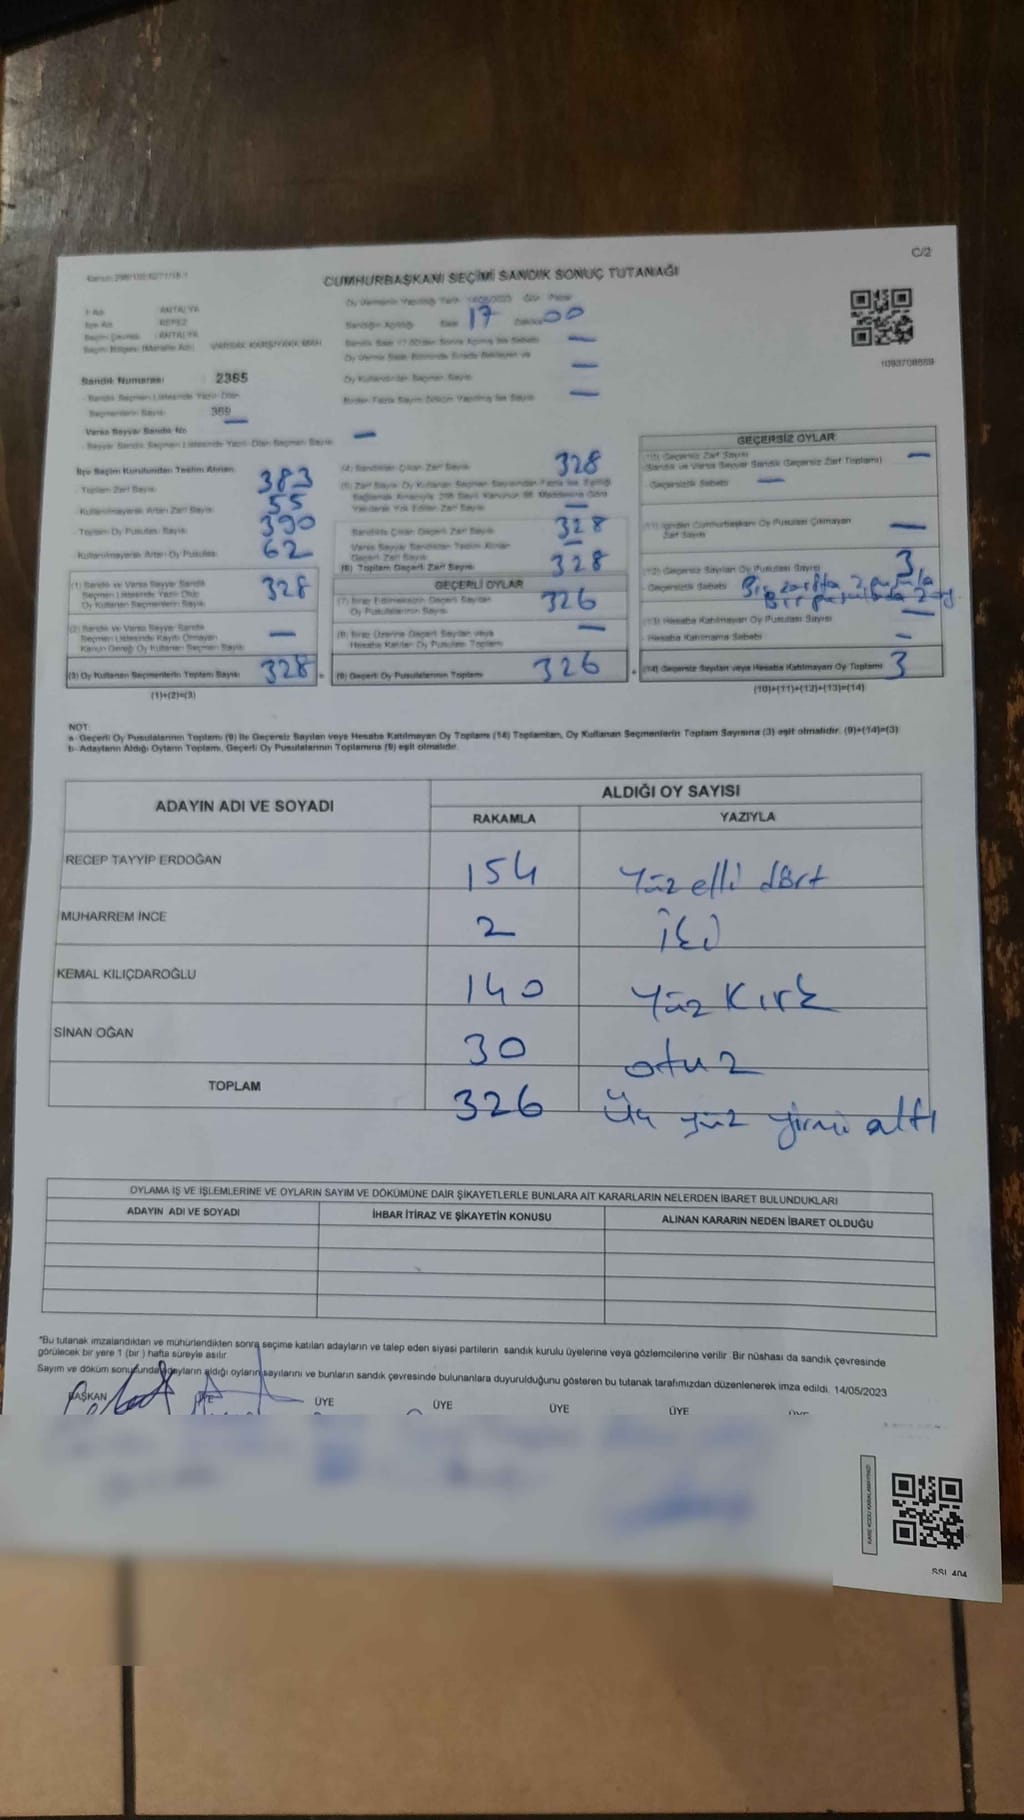 C/2
CUMHURBAŞKANI SEÇİMİ SANDIK SONUÇ TUTANAĞI
İl Adı ANTALYA
İlçe Adı KEPEZ
Seçim Çevresi ANTALYA
Seçim Bölgesi (Mahalle Adı) VARSAK KARŞIYAKA MAH
Oy Vermenin Yapıldığı Tarih 14/05/2023 Gün Pazar
Sandığın Açıldığı Saat 17 Dakika 00
1093708669
Sandık Numarası 2365
Sandık Seçmen Listesinde Yazılı Olan
Seçmenlerin Sayısı 369
Varsa Seyyar Sandık No —
Seyyar Sandık Seçmen Listesinde Yazılı Olan Seçmen Sayısı —
Oy Kullandırılan Seçmen Sayısı —
Birden Fazla Sayım Döküm Yapılmış İse Sayısı —
İlçe Seçim Kurulundan Teslim Alınan
Toplam Zarf Sayısı 383
Kullanılmayarak Artan Zarf Sayısı 55
Toplam Oy Pusulası Sayısı 390
Kullanılmayarak Artan Oy Pusulası 62
(1) Sandık ve Varsa Seyyar Sandık
Seçmen Listesinde Yazılı Olup
Oy Kullanan Seçmenlerin Sayısı 328
(2) Sandık ve Varsa Seyyar Sandık
Seçmen Listesinde Kayıtlı Olmayan
Kanun Gereği Oy Kullanan Seçmen Sayısı —
(3) Oy Kullanan Seçmenlerin Toplam Sayısı 328 =
(1)+(2)=(3)
(4) Sandıktan Çıkan Zarf Sayısı 328
Sandıkta Çıkan Geçerli Zarf Sayısı 328
Varsa Seyyar Sandıktan Teslim Alınan
Geçerli Zarf Sayısı —
(6) Toplam Geçerli Zarf Sayısı 328
GEÇERLİ OYLAR
(7) İtiraz Edilmeksizin Geçerli Sayılan
Oy Pusulalarının Sayısı 326
(8) İtiraz Üzerine Geçerli Sayılan veya
Hesaba Katılan Oy Pusulası Toplamı —
(9) Geçerli Oy Pusulalarının Toplamı 326 +
GEÇERSİZ OYLAR
(10) Geçersiz Zarf Sayısı
(Sandık ve Varsa Seyyar Sandık Geçersiz Zarf Toplamı) —
Geçersizlik Sebebi —
(11) İçinden Cumhurbaşkanı Oy Pusulası Çıkmayan
Zarf Sayısı —
(12) Geçersiz Sayılan Oy Pusulası Sayısı 3
Geçersizlik Sebebi Bir zarfta 2 pusula
Bir pusulada 2 oy
(13) Hesaba Katılmayan Oy Pusulası Sayısı —
Hesaba Katılmama Sebebi —
(14) Geçersiz Sayılan veya Hesaba Katılmayan Oy Toplamı 3
(10)+(11)+(12)+(13)=(14)
NOT:
a- Geçerli Oy Pusulalarının Toplamı (9) ile Geçersiz Sayılan veya Hesaba Katılmayan Oy Toplamı (14) Toplamları, Oy Kullanan Seçmenlerin Toplam Sayısına (3) eşit olmalıdır. (9)+(14)=(3)
b- Adayların Aldığı Oyların Toplamı, Geçerli Oy Pusulalarının Toplamına (9) eşit olmalıdır.
ADAYIN ADI VE SOYADI
ALDIĞI OY SAYISI
RAKAMLA YAZIYLA
RECEP TAYYİP ERDOĞAN 154 Yüz elli dört
MUHARREM İNCE 2 iki
KEMAL KILIÇDAROĞLU 140 Yüz Kırk
SİNAN OĞAN 30 otuz
TOPLAM 326 Üç yüz yirmi altı
OYLAMA İŞ VE İŞLEMLERİNE VE OYLARIN SAYIM VE DÖKÜMÜNE DAİR ŞİKAYETLERLE BUNLARA AİT KARARLARIN NELERDEN İBARET BULUNDUKLARI
ADAYIN ADI VE SOYADI İHBAR İTİRAZ VE ŞİKAYETİN KONUSU ALINAN KARARIN NEDEN İBARET OLDUĞU
"Bu tutanak imzalandıktan ve mühürlendikten sonra seçime katılan adayların ve talep eden siyasi partilerin sandık kurulu üyelerine veya gözlemcilerine verilir. Bir nüshası da sandık çevresinde
görülecek bir yere 1 (bir) hafta süreyle asılır.
Sayım ve döküm sonucunda adayların aldığı oyların sayılarını ve bunların sandık çevresinde bulunanlara duyurulduğunu gösteren bu tutanak tarafımızdan düzenlenerek imza edildi. 14/05/2023
BAŞKAN ÜYE ÜYE ÜYE ÜYE ÜYE